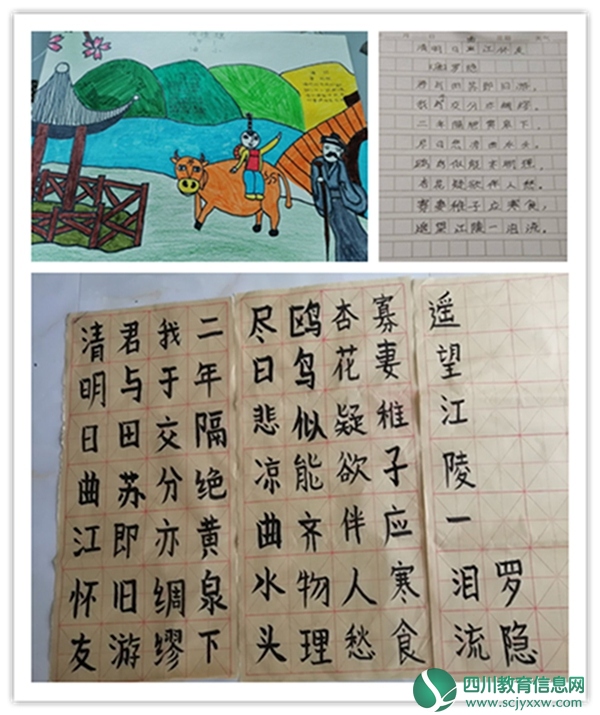 清明日曲江怀友
(唐)罗隐
君与田苏即旧游,
我于交分亦绸缪。
二年隔绝黄泉下,
尽日悲凉曲水头。
鸥鸟似能齐物理,
杏花疑欲伴人愁。
寡妻稚子应寒食,
遥望江陵一泪流。
清明日曲江怀友
君与田苏即旧游
我于交分亦绸缪
二年隔绝黄泉下
尽日悲凉曲水头
鸥鸟似能齐物理
杏花疑欲伴人愁
寡妻稚子应寒食
遥望江陵一泪流
罗隐
四川教育信息网
www.scjyxxw.com